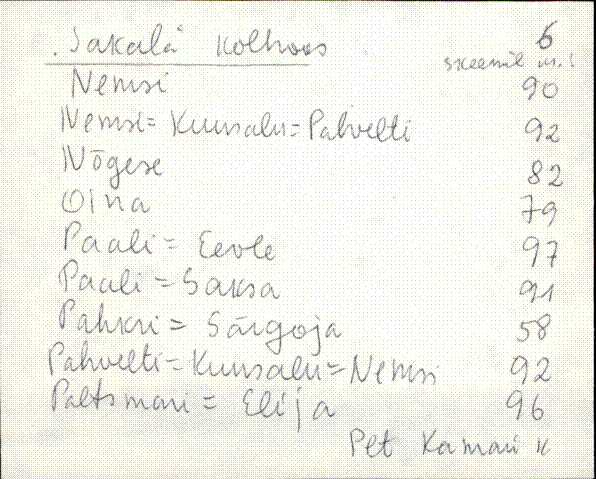 "Sakala" kolhoos 6
skeemil nr.:
Nemsi 90
Nemsi = Kuusalu = Pahvelti 92
Nõgese 82
Oina 79
Paali = Eevle 97
Paali = Saksa 91
Pahkri = Särgoja 58
Pahvelti = Kuusalu = Nemsi 92
Paltsmari = Elija 96
Pst Kamari k